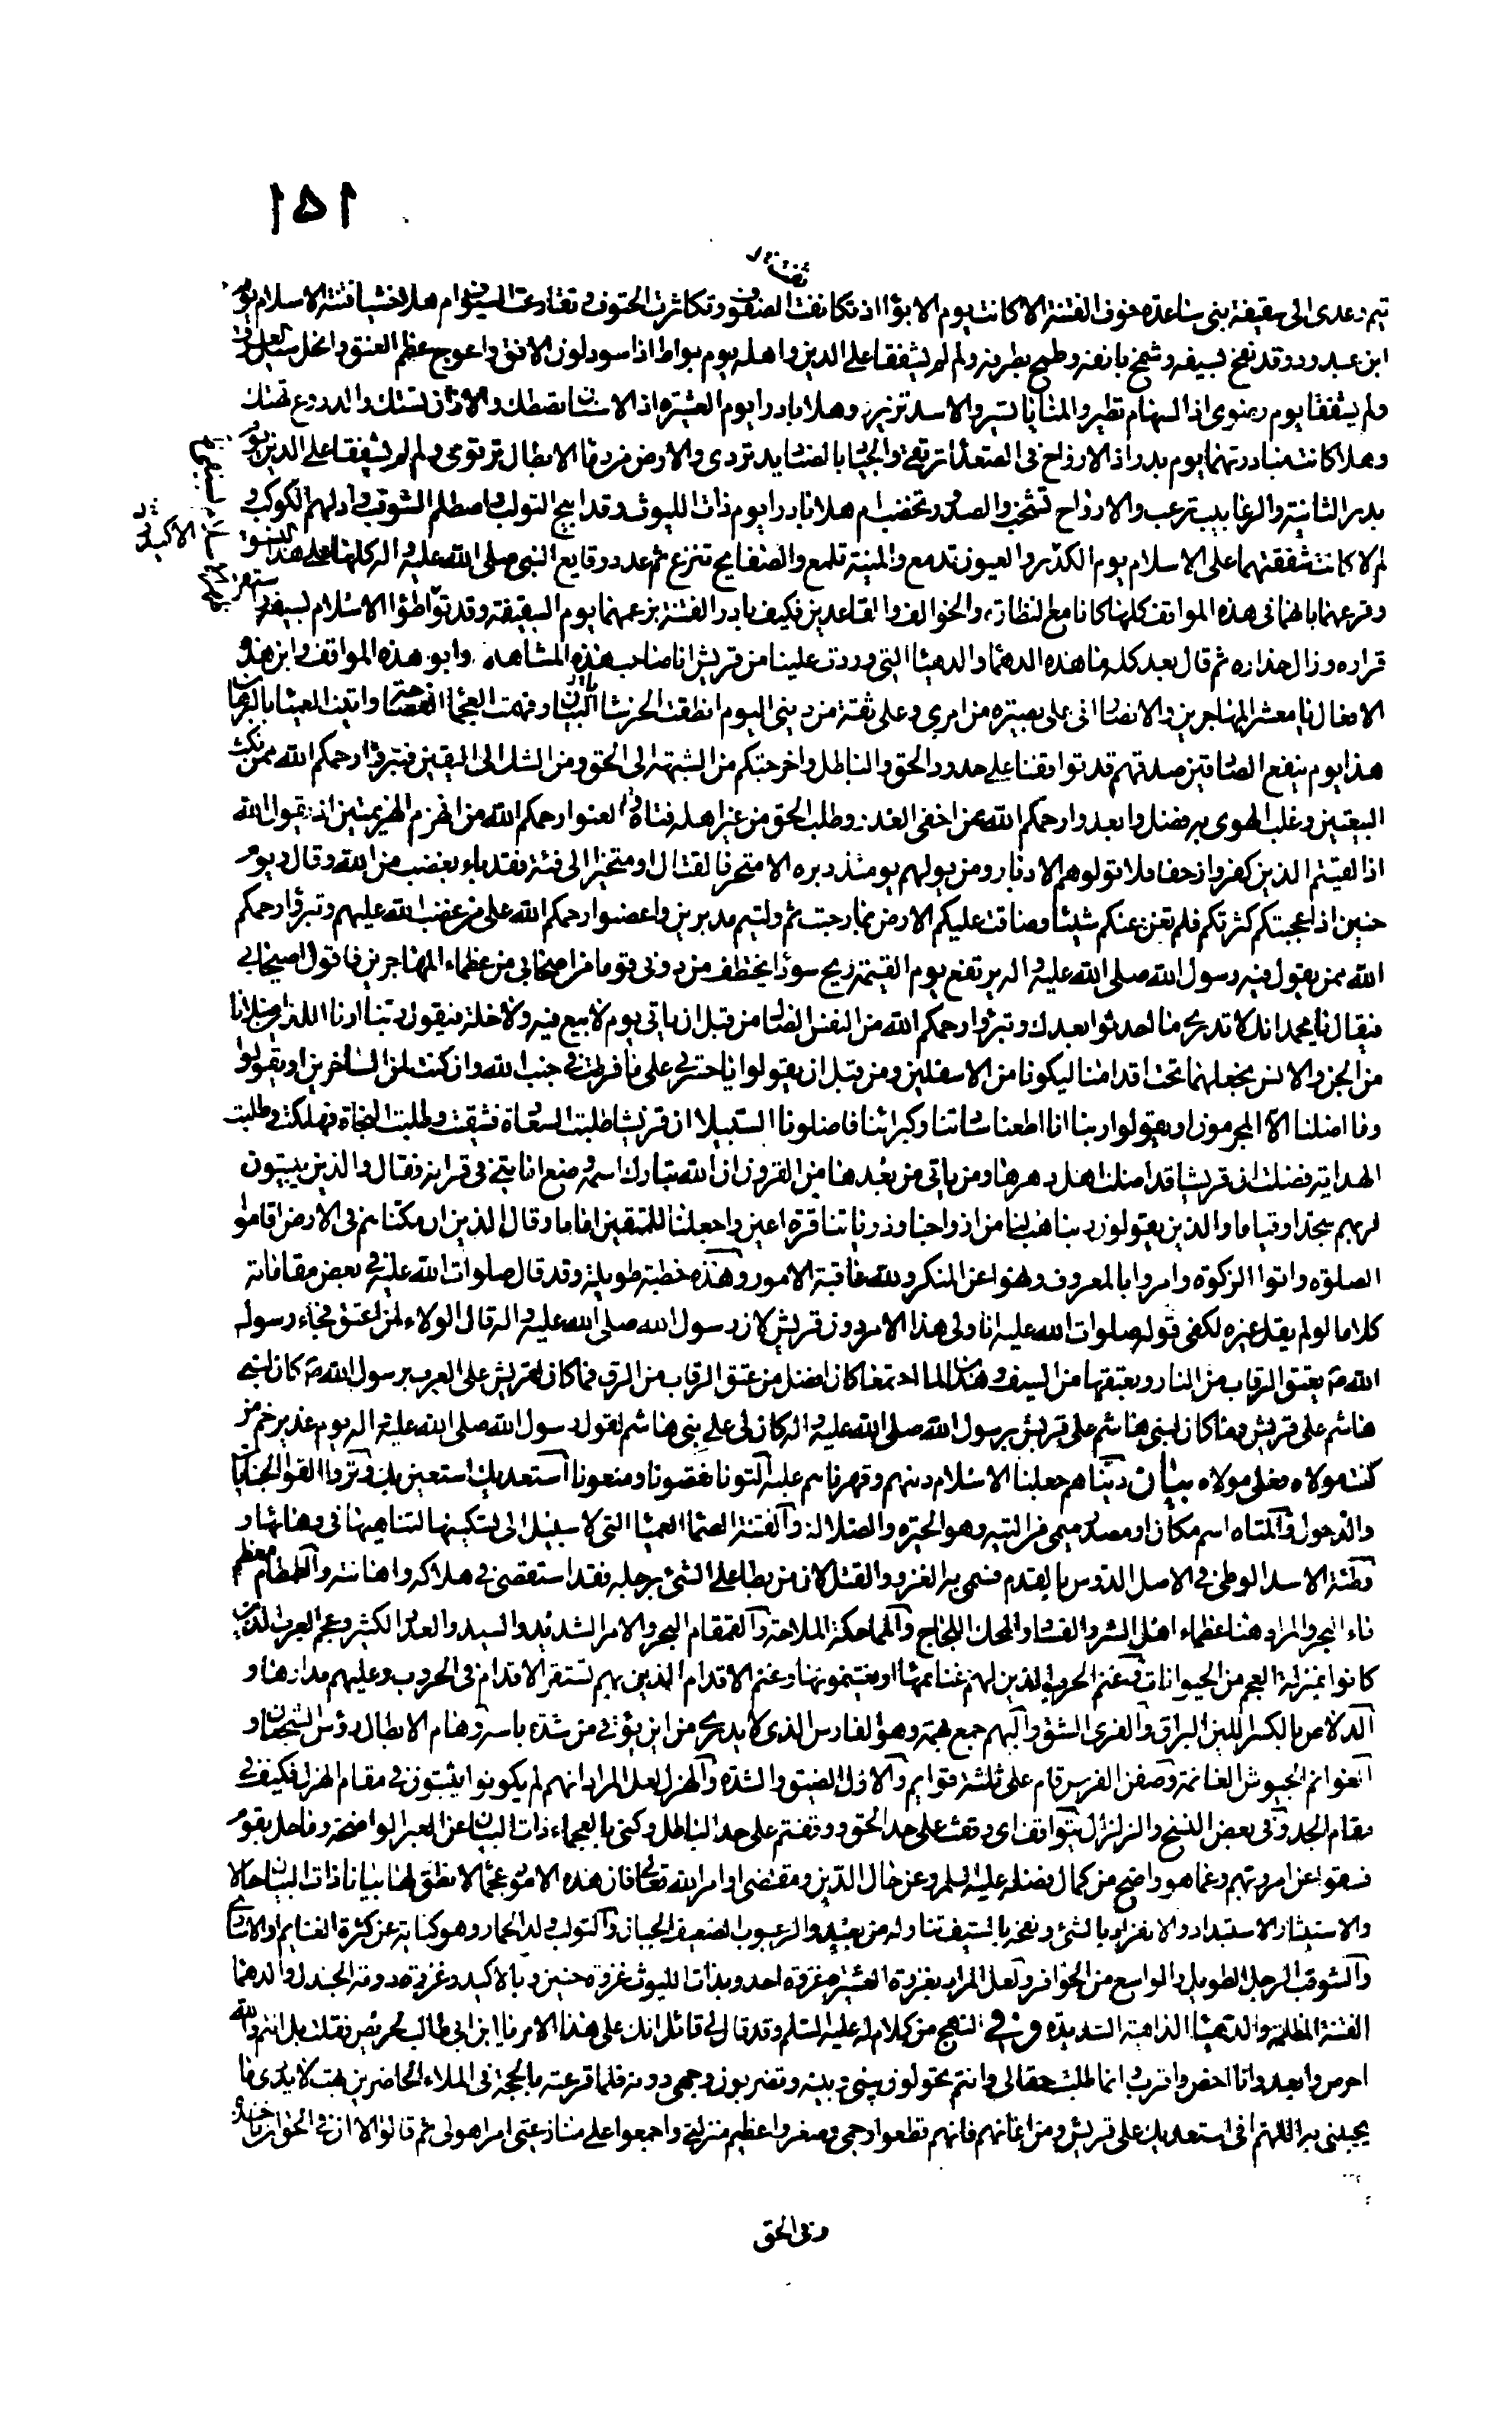 ١٥١
تيم وعدى الى سقيفة بنى ساعدة خوف الفتنة الا كانت يوم الابواء اذ تكاثفت الصفوف وتكاثرت الحتوف وتقارعت السيوف ام هلا خشيا فتنة الاسلام يوم
ابن عبد ود وقد نفخ بسيفه وشمخ بانفه وطمح بطرفه ولم لم يشفقا على الدين واهله يوم بواط اذ اسود لون الافق واعوج عظم العنق وانحل سيل الغرق
ولم يشفقا يوم رضوى اذ السهام تطير والمنايا تسير والاسد تزير وهلا بادرا يوم العشيرة اذ الاسنان تصطك والاذان تستك والدروع تهتك
وهلا كانت مبادرتهما يوم بدر اذ الارواح فى الصعداء ترتقى والجياد بالصناديد تردى والارض من دماء الابطال ترتوى ولم لم يشفقا على الدين يوم
بدر الثانية والرعابيب ترعب والاوداج تشخب والصدور تخضب ام هلا بادرا يوم ذات الليوث وقد ابيح التولب واصطلم الشوقب وادلهم الكوكب و
لم لا كانت شفقتهما على الاسلام يوم الكدر والعيون تدمع والمنية تلمع والصفايح تنزع ثم عدد وقايع النبى صلى الله عليه واله كلها على هذا النسق
وقرعهما بانهما فى هذه المواقف كلها كانا مع النظارة والخوالف والقاعدين فكيف بادرا الفتنة بزعمهما يوم السقيفة وقد توطؤ الاسلام بسيفه و
قراره وزال حذاره ثم قال بعد كله ما هذه الدهماء والدهياء التى وردت علينا من قريش انا صاحب هذه المشاهد وابو هذه المواقف وابن هذه
الافعال يا معشر المهاجرين والانصار انى على بصيرة من امرى وعلى ثقة من دينى اليوم انطقت الخرساء البيان وفهمت العجماء الفصاحة واتيت العمياء بالبرهان
هذا يوم ينفع الصادقين صدقهم قد توافقنا على حدود الحق والباطل واخرجتكم من الشبهة الى الحق ومن الشك الى اليقين فتبرؤا رحمكم الله ممن نكث
البيعتين وغلب الهوى به فضل وابعدوا رحمكم الله ممن اخفى الغدر وطلب الحق من غير اهله فتاه والعنوا رحمكم الله من انهزم الهزيمتين اذ يقول الله
اذا لقيتم الذين كفروا زحفا فلا تولوهم الادبار ومن يولهم يومئذ دبره الا متحرفا لقتال او متحيزا الى فئة فقد باء بغضب من الله وقال ويوم
حنين اذ اعجبتكم كثرتكم فلم تغن عنكم شيئا وضاقت عليكم الارض بما رحبت ثم وليتم مدبرين واغضبوا رحمكم الله على من غضب الله عليهم وتبرؤا رحمكم
الله ممن يقول فيه رسول الله صلى الله عليه واله يرتفع يوم القيمة ريح سوداء يختطف من دونى قوما من اصحابى من عظماء المهاجرين فاقول اصيحابى
فيقال يا محمد انك لا تدرى ما احدثوا بعدك وتبرؤا رحمكم الله من النفس الضال من قبل ان ياتى يوم لا بيع فيه ولا خلة فيقول ربنا ارنا اللذين اضلانا
من الجن والانس نجعلهما تحت اقدامنا ليكونا من الاسفلين ومن قبل ان يقولوا يا حسرتى على ما فرطت فى جنب الله وان كنت لمن الساخرين او يقولوا
وما اضلنا الا المجرمون او يقولوا ربنا انا اطعنا سادتنا وكبرائنا فاضلونا السبيلا ان قريشا طلبت السعادة فشقيت وطلبت النجاة فهلكت وطلبت
الهداية فضلت ان قريشا قد اضلت اهل دهرها ومن ياتى من بعدها من القرون ان الله تبارك اسمه وضع امامتى فى قرانه فقال والذين يبيتون
لربهم سجدا وقياما والذين يقولون ربنا هب لنا من ازواجنا وذرياتنا قرة اعين واجعلنا للمتقين اماما وقال الذين ان مكناهم فى الارض اقاموا
الصلوة واتوا الزكوة وامروا بالمعروف ونهوا عن المنكر ولله عاقبة الامور وهذه خطبة طويلة وقد قال صلوات الله عليه فى بعض مقاماته
كلاما لو لم يقل غيره لكفى قوله صلوات الله عليه انا ولى هذا الامر دون قريش لان رسول الله صلى الله عليه واله قال الولاء لمن اعتق فجاء رسول
الله ص بعتق الرقاب من النار وبعتقها من السيف وهذان لما اجتمعا كان افضل من عتق الرقاب من الرق فما كان لقريش على العرب برسول الله ص كان لبنى
هاشم على قريش وما كان لبنى هاشم على قريش برسول الله صلى الله عليه واله كان لى على بنى هاشم لقول رسول الله صلى الله عليه واله يوم غدير خم من
كنت مولاه فعلى مولاه بيان دنياهم جعلنا الاسلام دينهم وقهرناهم عليه ... فغصبونا ومنعونا استعديك استعين بك وتروا القوا الجنايا
والذحول والمتاه اسم مكان او مصدر ميمى من التيه وهو الحيرة والضلالة والفتنة الصماء العمياء التى لا سبيل الى تسكينها لتناهيها فى دهائها و
وطئة الاسد الوطى فى الاصل الدوس بالقدم فسمى به الغزو والقتل لان من يطأ على الشئ برجله فقد استقصى فى هلاكه واهانته والطمطام معظم
ماء البحر والمراد هنا عظماء اهل الشر والفساد والمحك اللجاج والمماحكة الملاحة والقمقام البحر والامر الشديد والسيد والعدد الكثير وعجم العرب الذين
كانوا بمنزلة العجم من الحيوانات وغنم الحرب الذين لهم غنائمها او يغتنمونها وغنم الاقدام الذين بهم تستقر الاقدام فى الحروب وعليهم مدارها و
الدلاص بالكسر اللين البراق والفرى الشق والبهم جمع بهمة وهو الفارس الذى لا يدرى من اين يؤتى من شدة باسه وهام الابطال رؤس الشجعان و
... الجيوش الغانمة وصفن الفرس قام على ثلثة قوائم والازل الضيق والشدة والهزل لعل المراد انهم لم يكونوا يثبتون فى مقام الهزل فكيف فى
مقام الجد وفى بعض النسخ والزلزال توافقنا اى وقفت على حد الحق ووقفتم على حد الباطل وكنى بالعجماء ذات البيان عن العبر الواضحة وما حل بقوم
فسقوا عن امر ربهم وعما هو واضح من كمال فضله عليه السلم وعن حال الدين ومقتضى اوامر الله تعالى فان هذه الامور عجماء لا نطق لها بيانا ذات البيان حالا
والاستيثار الاستبداد والانفراد بالشئ ونفحه بالسيف تناوله من بعيد والرعبوب الضعيف الجبان والتولب ولد الحمار وهو كناية عن كثرة الغنايم والاسارى
والشوقب الرجل الطويل والواسع من الحوافر ولعل المراد بغزوة العشيرة غزوة احد وبذات الليوث غزوة حنين وبالاكيدر غزوة دومة الجندل والدهماء
الفتنة المظلمة والدهياء الداهية الشديدة وفى النهج من كلام له عليه السلم وقد قال لى قائل انك على هذا الامر يا ابن ابى طالب لحريص فقلت بل انتم والله
احرص وابعد وانا اخص واقرب وانما طلبت حقا لى وانتم تحولون بينى وبينه وتضربون وجهى دونه فلما قرعته بالحجة فى الملاء الحاضرين هب لا يدرى ما
يجيبنى به اللهم انى استعديك على قريش ومن اعانهم فانهم قطعوا رحمى وصغروا عظيم منزلتى واجمعوا على منازعتى امرا هو لى ثم قالوا الا ان فى الحق ان تاخذه
وفى الحق